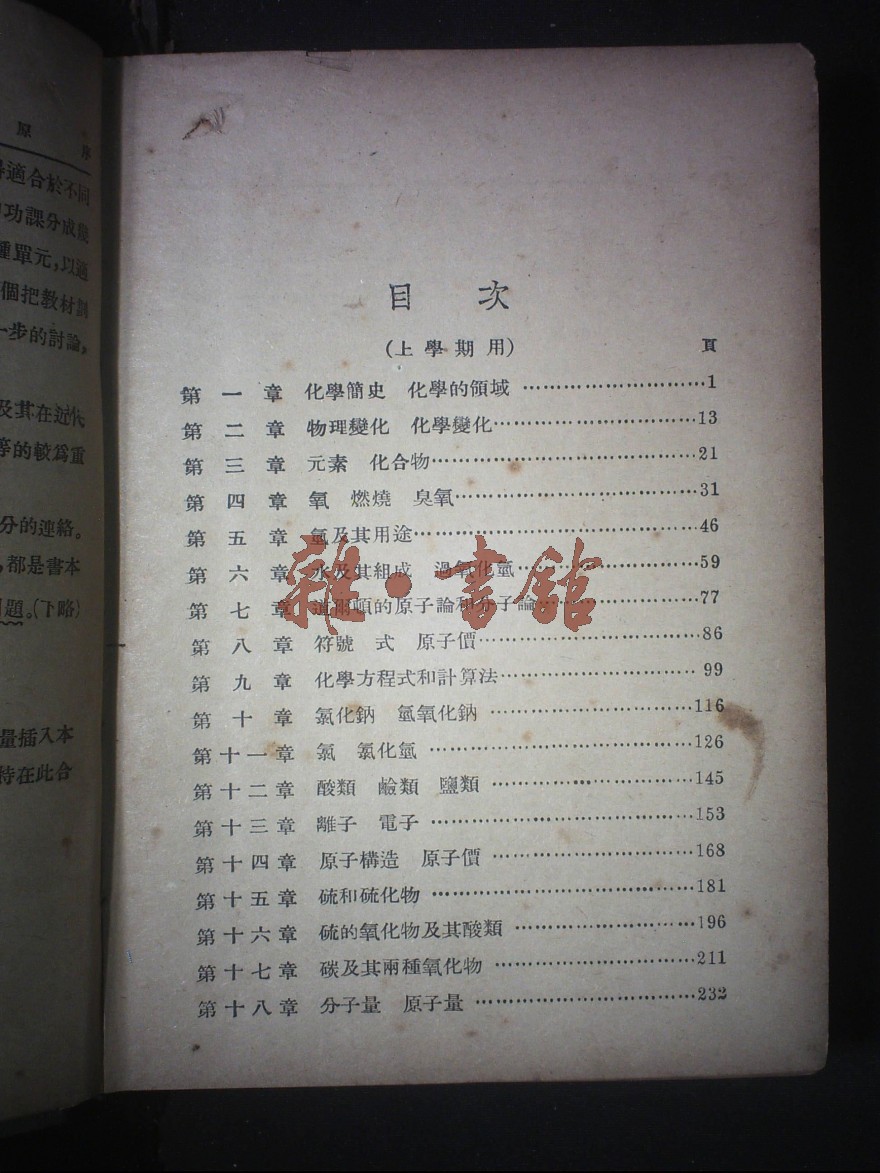 原 序
適合於不同
功課分成幾
種單元,以適
個把教材劃
一步的討論,
及其在近代
等的較爲重
分的連絡。
,都是書本
題。(下略)
量插入本
特在此合
目 次
(上學期用) 頁
第一章 化學簡史 化學的領域 ……………………1
第二章 物理變化 化學變化……………………13
第三章 元素 化合物……………………21
第四章 氧 燃燒 臭氧……………………31
第五章 氫及其用途……………………46
第六章 水及其組成 過氧化氫……………………59
第七章 道爾頓的原子論和分子論……………………77
第八章 符號 式 原子價……………………86
第九章 化學方程式和計算法……………………99
第十章 氯化鈉 氫氧化鈉 ……………………116
第十一章 氯 氯化氫 ……………………126
第十二章 酸類 鹼類 鹽類 ……………………145
第十三章 離子 電子 ……………………153
第十四章 原子構造 原子價 ……………………168
第十五章 硫和硫化物 ……………………181
第十六章 硫的氧化物及其酸類 ……………………196
第十七章 碳及其兩種氧化物 ……………………211
第十八章 分子量 原子量 ……………………232
雜·書館